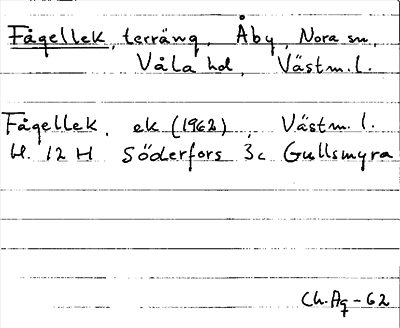 Fågellek, terräng, Åby, Nora sn,
Våla hd, Västm. l.
Fågellek, ek (1962), Västm. l.
H. 12 H Söderfors 3c Gullsmyra
Ch. Ag-62